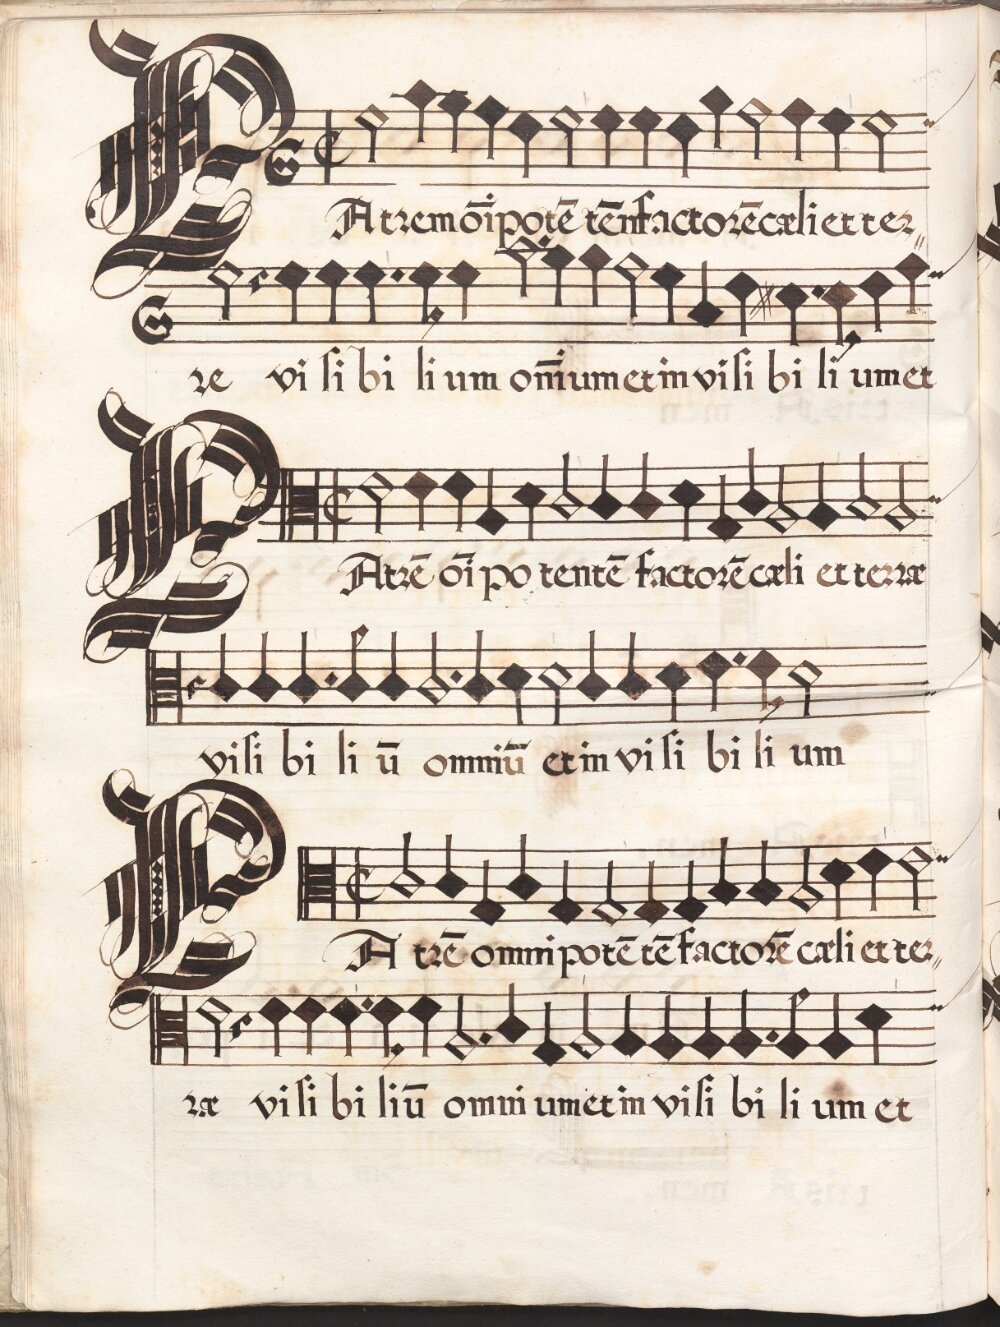 PAtrem oı̄potē tēn factorē cæli et ter„
re vi si bi li um oīnium et in vi si bi li um et
PAtrē oı̄ po tentē factorē cæli et terræ
visi bi li ū omniū et in vi si bi li um
PA trē omni potē tē factorē cæli et ter„
ræ vi si bi li ū omni um et in vi si bi li um et